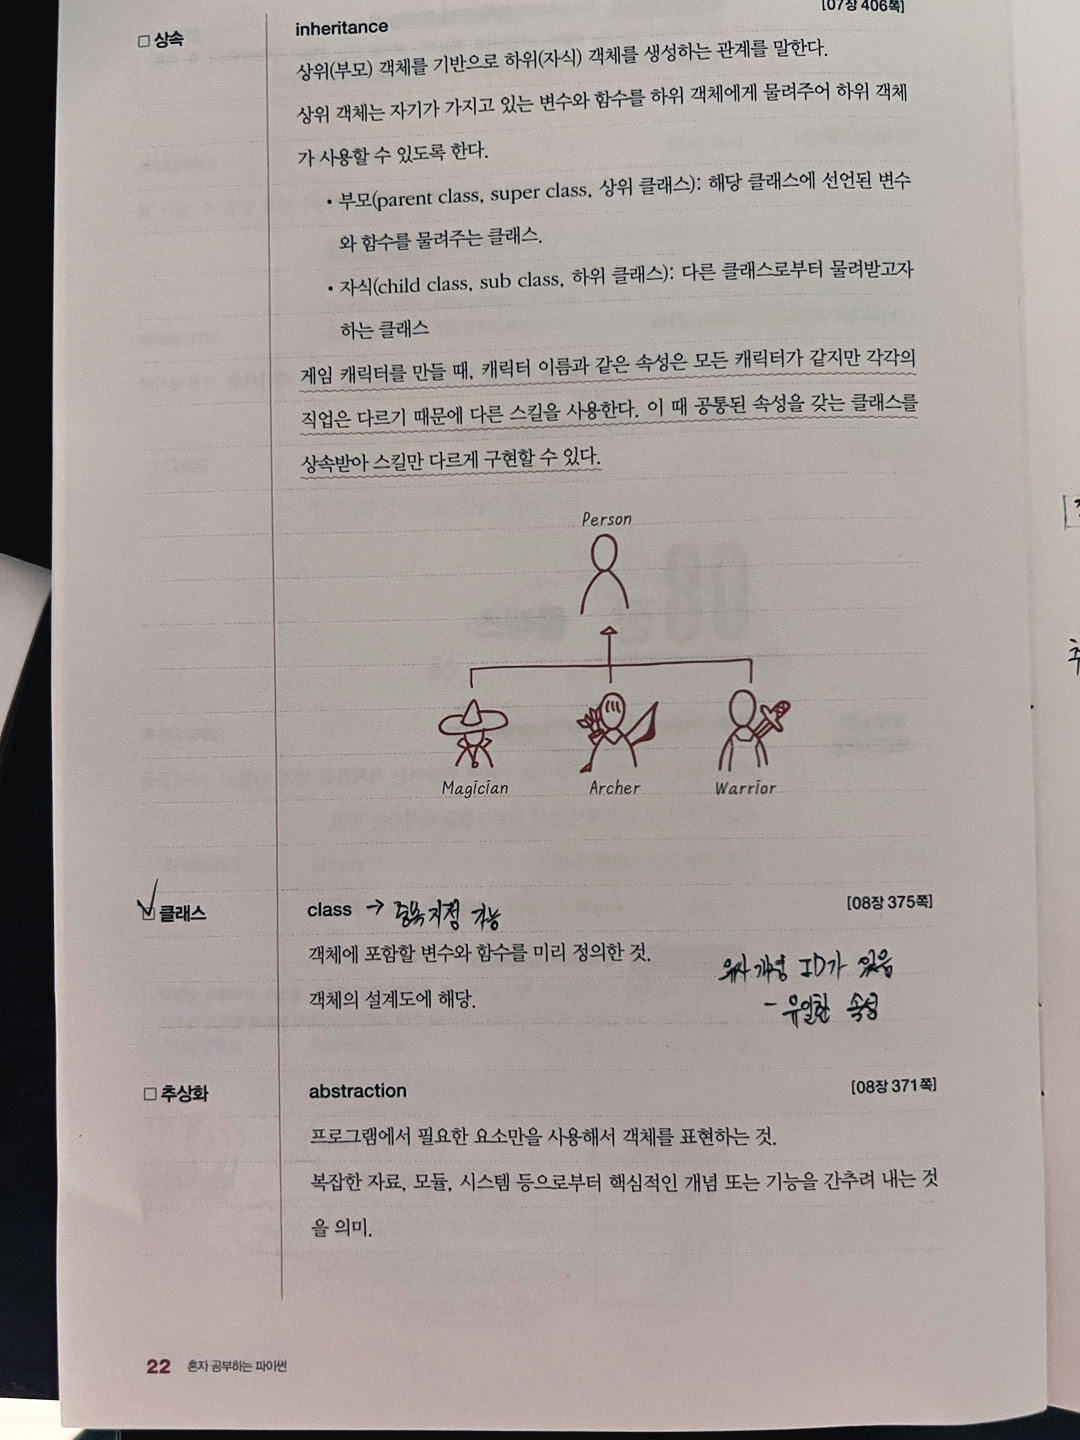 [07장 406쪽]
□ 상속
inheritance
상위(부모) 객체를 기반으로 하위(자식) 객체를 생성하는 관계를 말한다.
상위 객체는 자기가 가지고 있는 변수와 함수를 하위 객체에게 물려주어 하위 객체
가 사용할 수 있도록 한다.
• 부모(parent class, super class, 상위 클래스): 해당 클래스에 선언된 변수
와 함수를 물려주는 클래스.
• 자식(child class, sub class, 하위 클래스): 다른 클래스로부터 물려받고자
하는 클래스
게임 캐릭터를 만들 때, 캐릭터 이름과 같은 속성은 모든 캐릭터가 같지만 각각의
직업은 다르기 때문에 다른 스킬을 사용한다. 이 때 공통된 속성을 갖는 클래스를
상속받아 스킬만 다르게 구현할 수 있다.
Person
Magician Archer Warrior
□ 클래스
class → 중복 지정 가능
[08장 375쪽]
객체에 포함할 변수와 함수를 미리 정의한 것.
객체의 설계도에 해당.
ID가 있음
- 유일한 속성
□ 추상화
abstraction
[08장 371쪽]
프로그램에서 필요한 요소만을 사용해서 객체를 표현하는 것.
복잡한 자료, 모듈, 시스템 등으로부터 핵심적인 개념 또는 기능을 간추려 내는 것
을 의미.
22 혼자 공부하는 파이썬